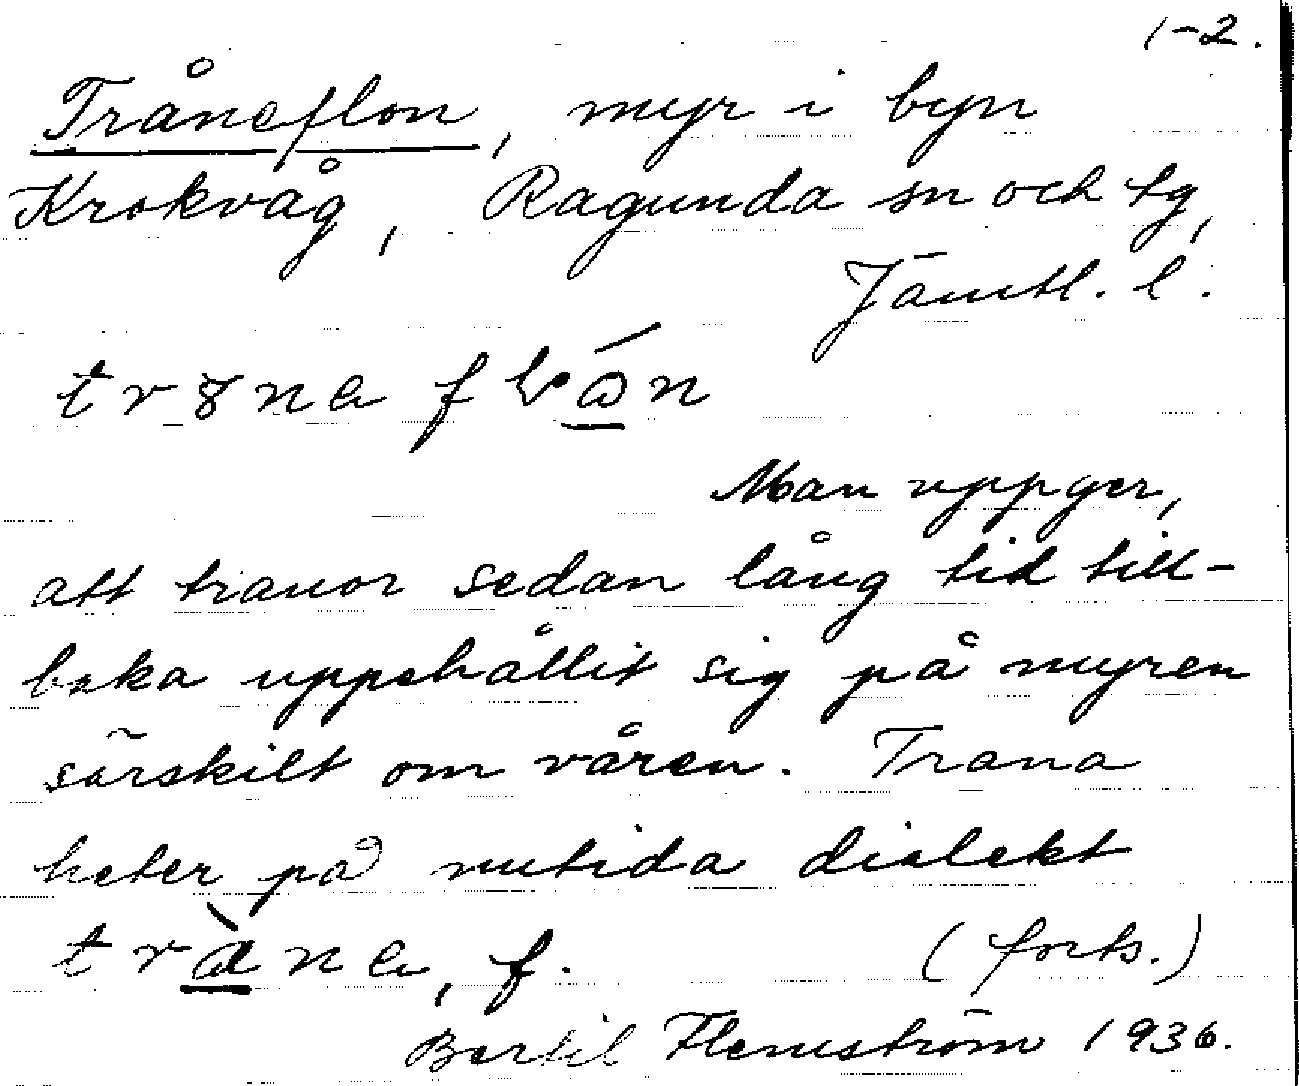 1-2.
Tråneflon, myr i byn
Krokvåg, Ragunda sn och tg,
Jämtl. l.
Man uppger,
att tranor sedan lång tid till-
baka uppehållit sig på myren
särskilt om våren. Trana
heter på nutida dialekt
(forts.)
Bertil Flemström 1936.